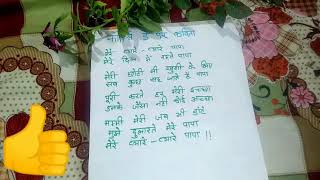 फादर्स डे पर कविता
मेरे प्यारे - प्यारे पापा
मेरे दिल में रहते पापा
मेरी छोटी सी खुशी के लिए
सब कुछ सह जाते हैं पापा
पूरी करते हर मेरी इच्छा
उनके जैसा नहीं कोई अच्छा
मम्मी मेरी जब भी डांटे
मुझे दुलारते मेरे पापा
मेरे प्यारे - प्यारे पापा !!